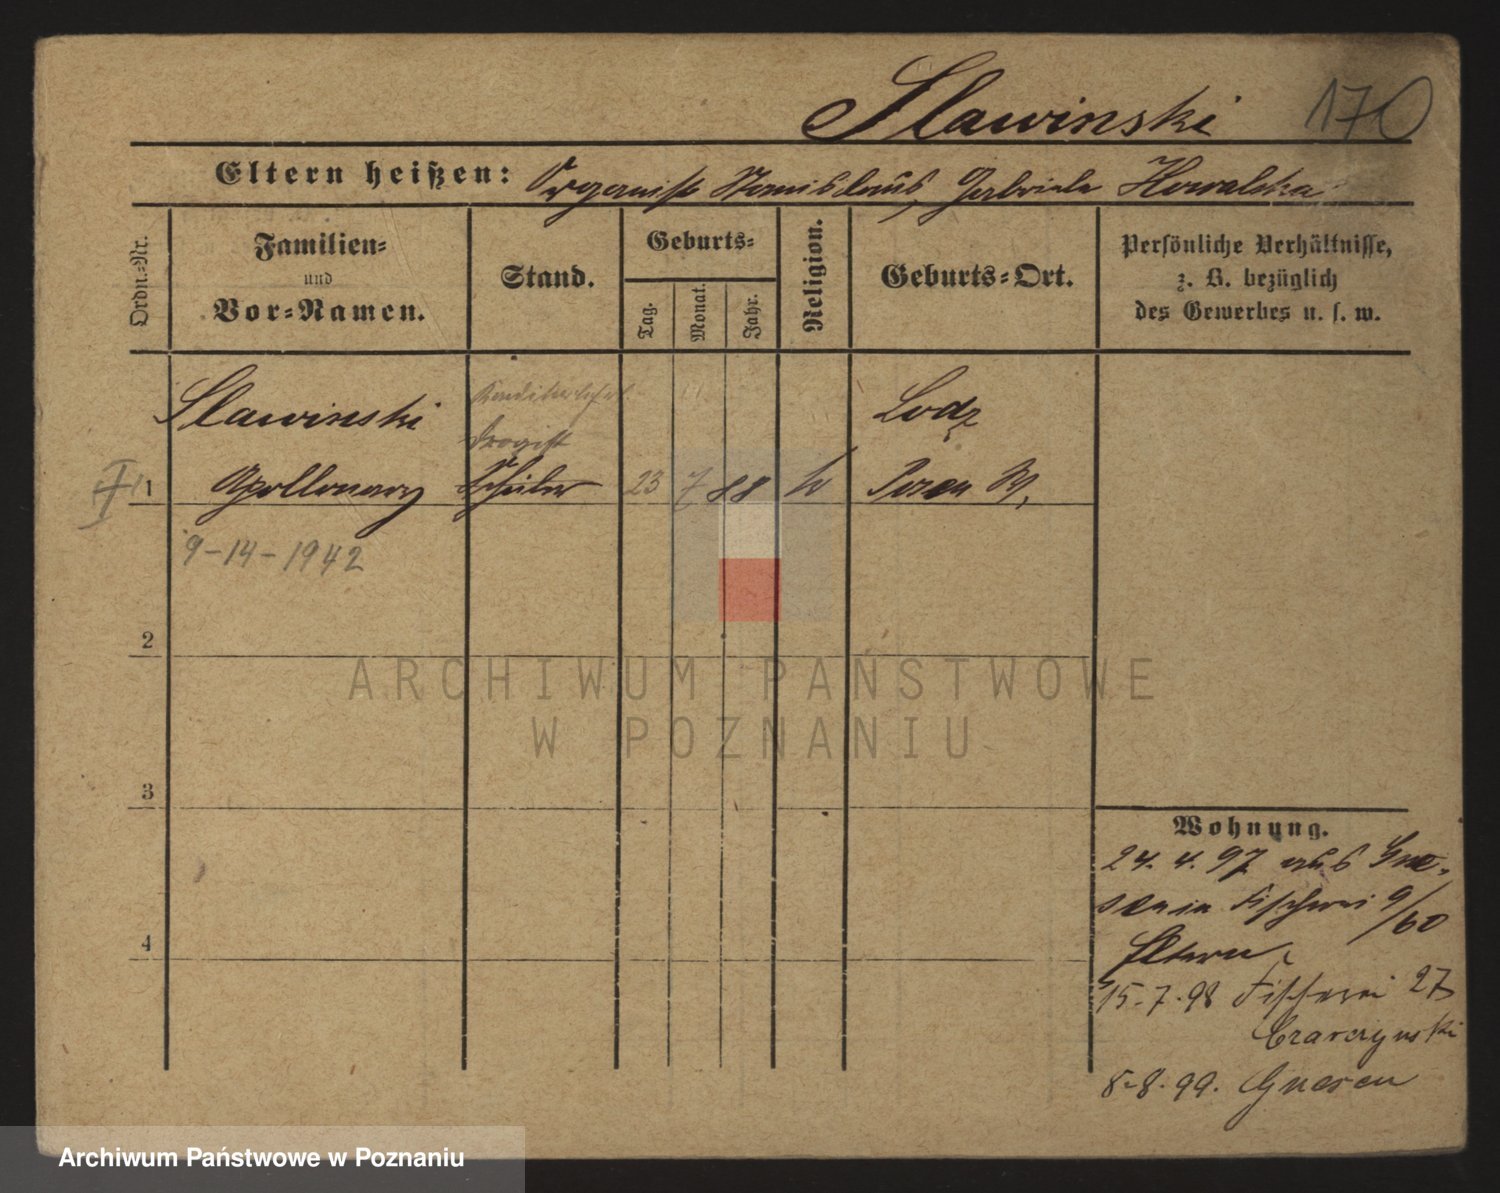 Slawinski 170
Eltern heißen: Organist Stanislaus, Gabriele Kowalska
Ordn.=Nr.
Familien=
und
Vor=Namen.
Stand.
Geburts=
Tag.
Monat.
Jahr.
Religion.
Geburts=Ort.
Persönliche Verhältnisse,
z. B. bezüglich
des Gewerbes u. s. w.
Slawinski Lodz
Drogist
1 Apollonary Schüler 23 7 88 k Posen
9-14-1942
2
3
4
Wohnung.
24. 4. 97 aus Gne-
sen in Fischerei 9/60
Eltern
15.7.98 Fischerei 27
8.8.99. Gnesen
ARCHIWUM PAŃSTWOWE
W POZNANIU
Archiwum Państwowe w Poznaniu